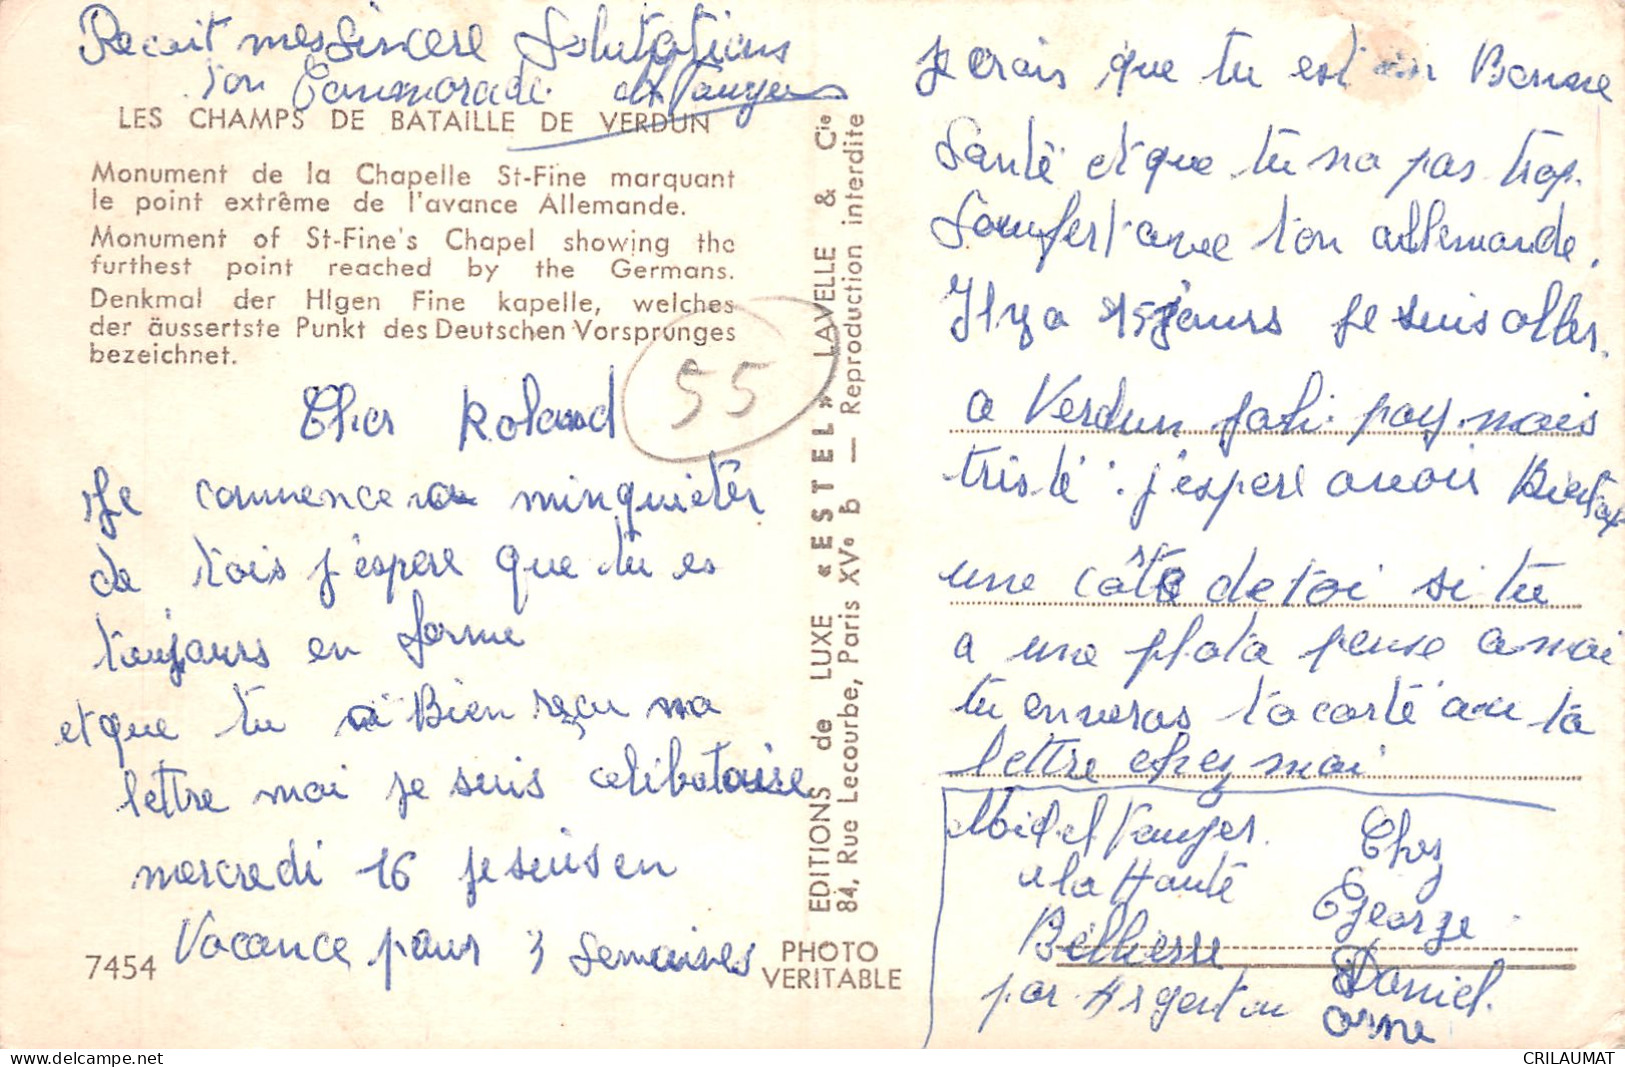 Recoit mes Sincere Salutations
ton Cammarade
LES CHAMPS DE BATAILLE DE VERDUN
Monument de la Chapelle St-Fine marquant
le point extrême de l'avance Allemande.
Monument of St-Fine's Chapel showing the
furthest point reached by the Germans.
Denkmal der Hlgen Fine kapelle, welches
der äussertste Punkt des Deutschen Vorsprunges
bezeichnet.
55
Cher Roland
Je commence a minquieter
de tois j'espere que tu es
toujours en forme
et que tu a Bien reçu ma
lettre moi je suis celibataire
mercredi 16 je suis en
Vacance pour 3 semaines
7454
PHOTO
VERITABLE
EDITIONS de LUXE « ESTEL » LAVELLE & Cie
84, Rue Lecourbe, Paris XVe b — Reproduction interdite
Je crois que tu est en Bonne
Santé et que tu na pas trop
Soufert avec ton allemande.
Il y a 15 jours je suis aller
a Verdun joli pay mais
triste : j'espere avoir Bientot
une côte de toi si tu
a une photo pense a moi
tu enveras ta carte ou ta
lettre chez moi
Michel Vauger
a la Haute
Bellierre
par Argentan
Chez
George
Daniel.
orne
CRILAUMAT